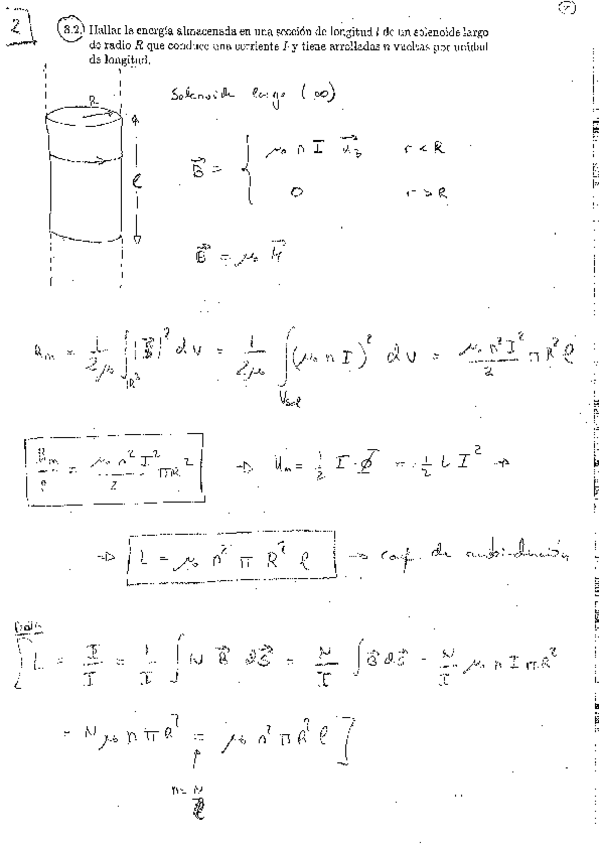 2
8.2. Hallar la energía almacenada en una sección de longitud l de un solenoide largo
de radio R que conduce una corriente I y tiene arrolladas n vueltas por unidad
de longitud.
R
l
Solenoide largo (∞)
B⃗ = { μ₀ n I u⃗z r < R
0 r > R
B⃗ = μ₀ H⃗
Um = 1/2μ₀ ∫R³ |B⃗|² dV = 1/2μ₀ ∫Vsol (μ₀ n I)² dV = μ₀ n² I²/2 π R² l
Um/l = μ₀ n² I²/2 π R² → Um = 1/2 I · Φ = 1/2 L I² →
→ L = μ₀ n² π R² l → coef. de autoinducción
L = Φ/I = 1/I ∫ N B⃗ dS⃗ = N/I ∫ B⃗ dS⃗ = N/I μ₀ n I π R²
= N μ₀ n π R² = μ₀ n² π R² l ]
n = N/l